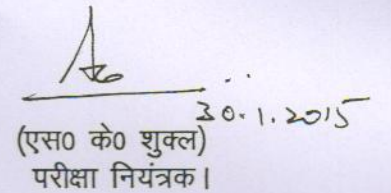 30.1.2015
(एस0 के0 शुक्ल)
परीक्षा नियंत्रक।